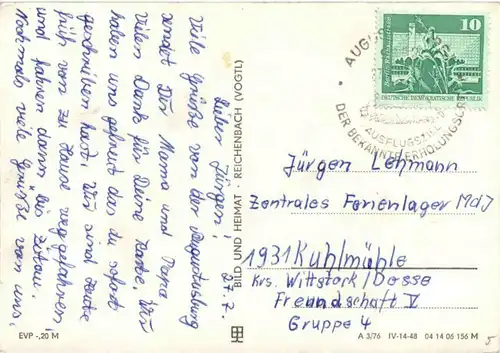 27.7.
Lieber Jürgen!
Viele Grüße von der Augustusburg
sendet Dir Mama und Papa
Vielen Dank für Deine Karte, Wir
haben uns gefreut das du sofort
geschrieben hast. Wir sind heute
früh von zu Hause weggefahren,
und fahren dann bis Zittau.
Nochmals viele Grüße von uns,
BILD UND HEIMAT · REICHENBACH (VOGTL)
10
Berlin, Rathausstraße
DEUTSCHE DEMOKRATISCHE REPUBLIK
AUGUS
AUSFLUGSZIEL
DER BEKANNTE ERHOLUNGSORT
Jürgen Lehmann
Zentrales Ferienlager MdJ
1931 Kuhlmühle
Krs. Wittstock/Dosse
Freundschaft V
Gruppe 4
EVP -,20 M
A 3/76 IV-14-48 04 14 06 156 M
5